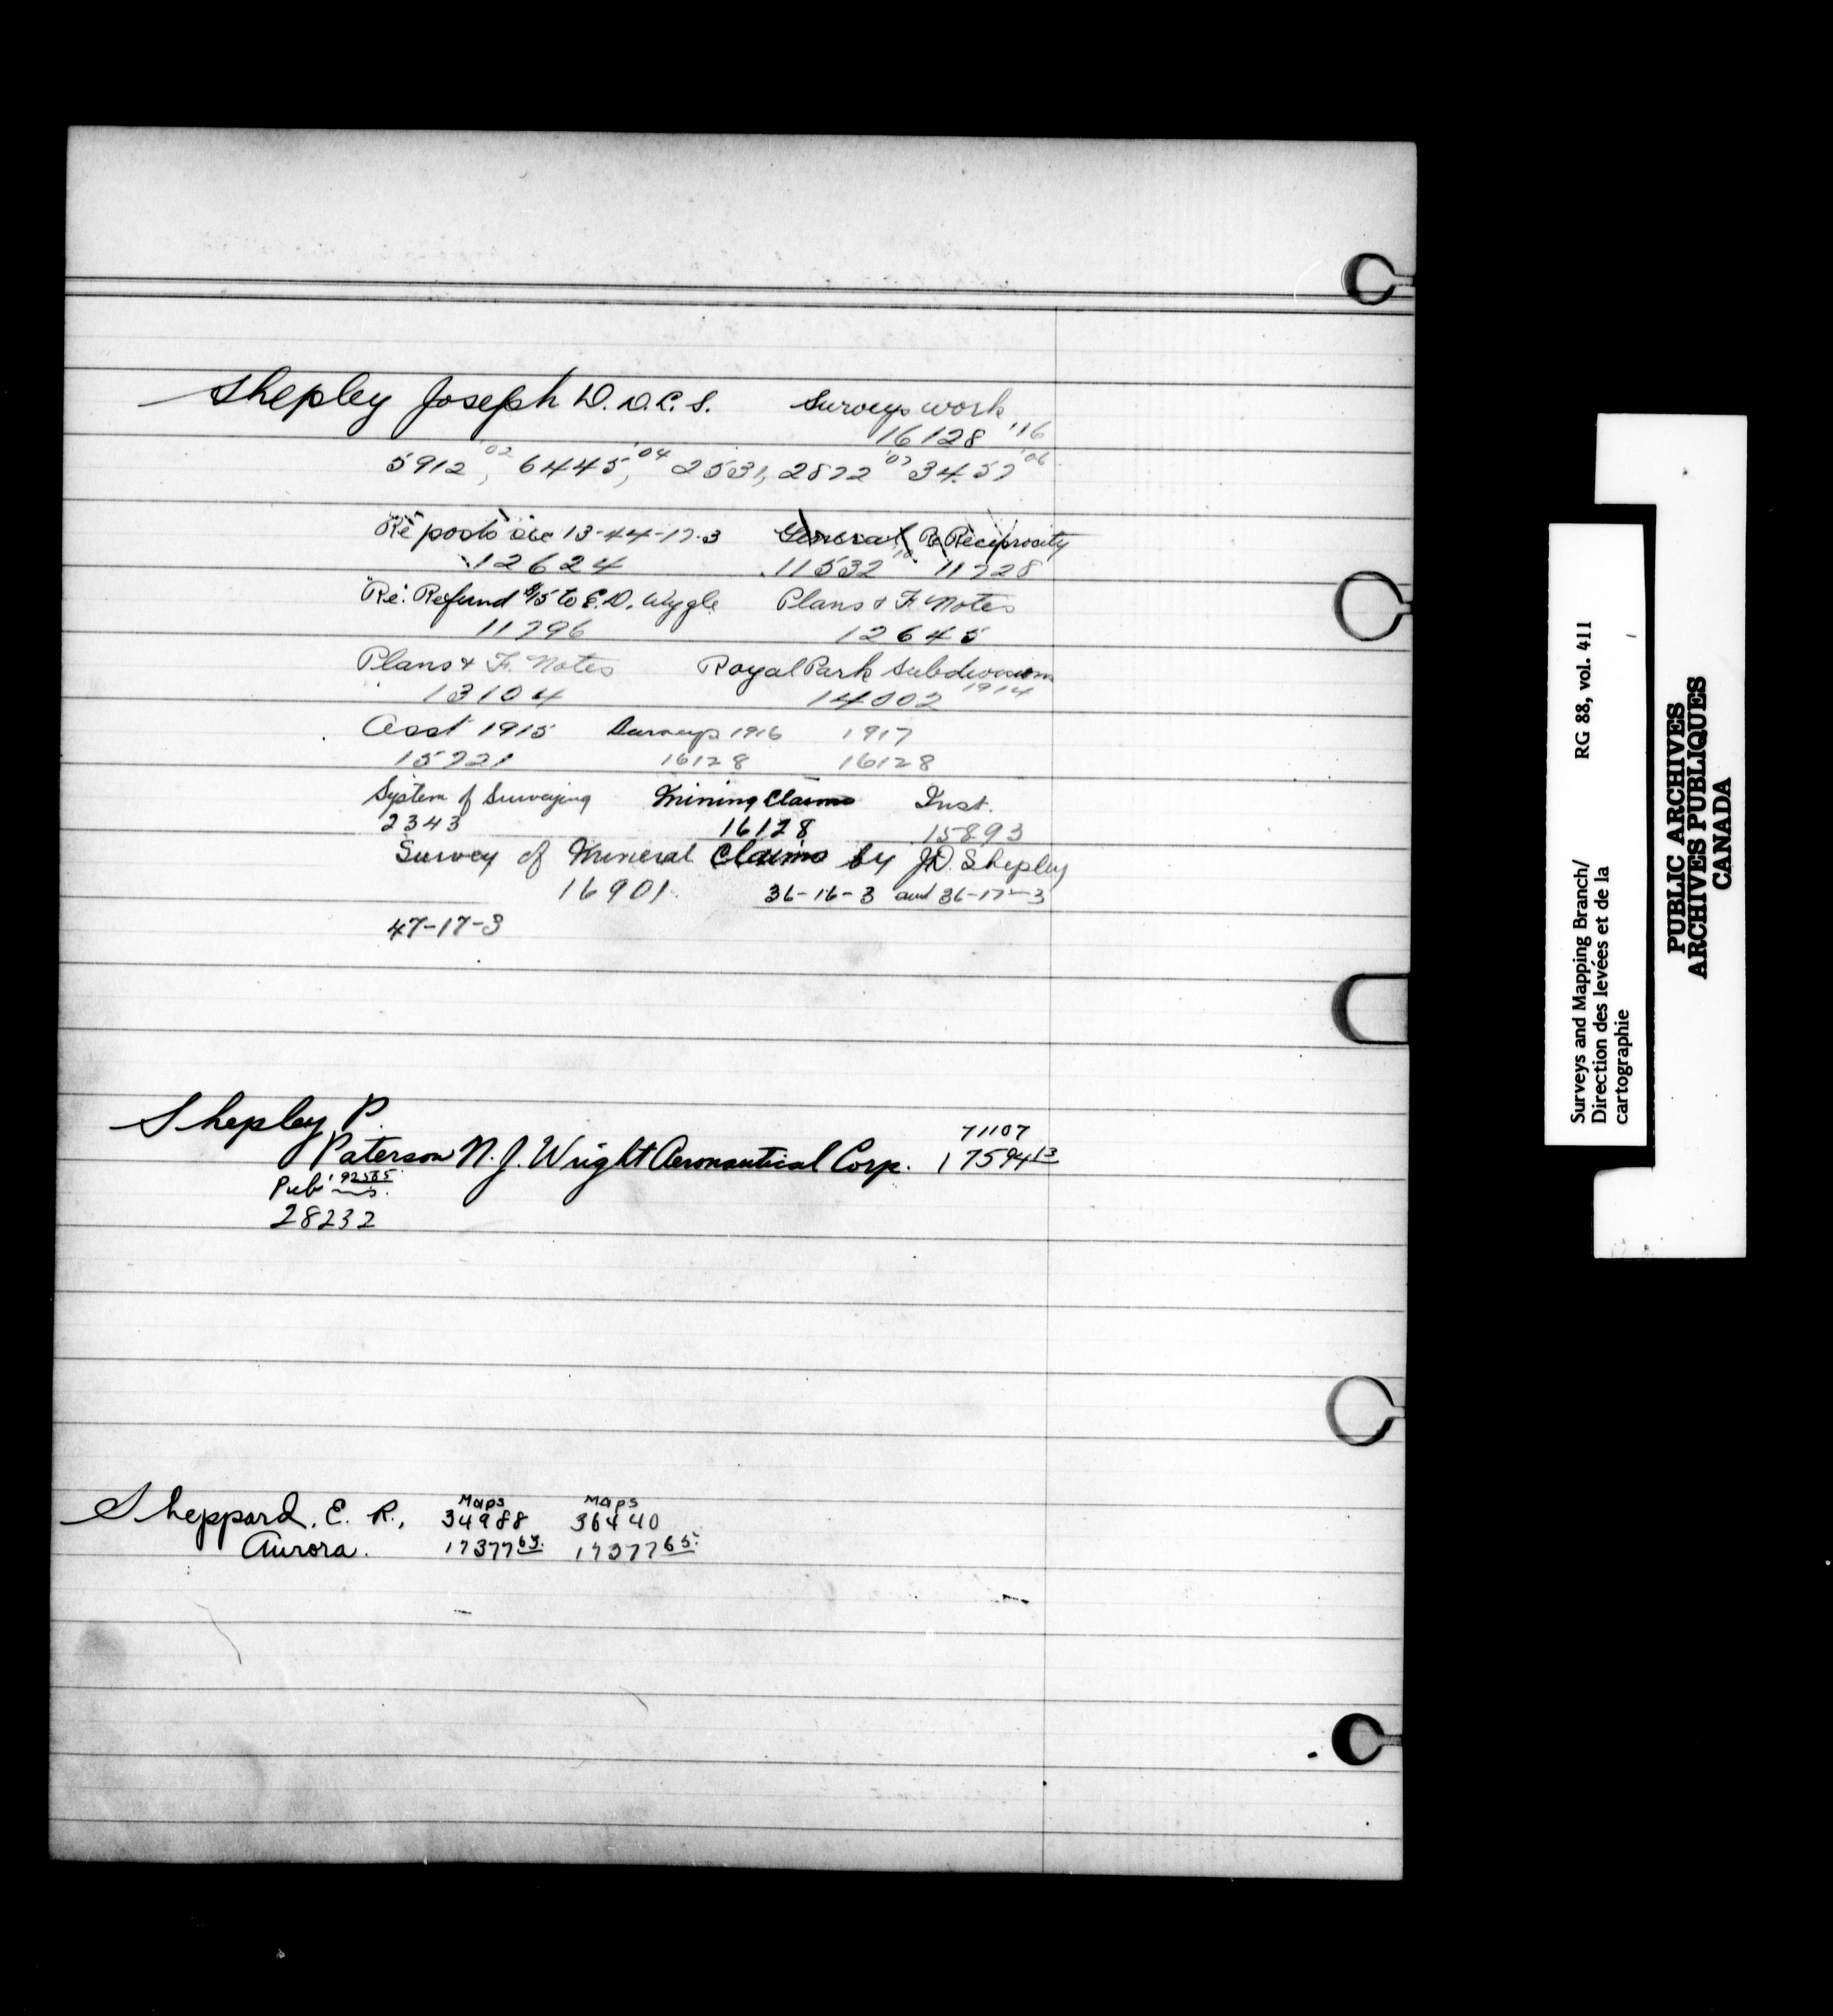 Shepley Joseph D. D.L.S. Surveys work
16128 '16
5912 '02, 6445, '04 2531, 2872 '07 3457 '06
Re posts Sec 13-44-17-3 General Re Reciprocity
12624 11532 '10 11728
Re: Refund $15 to E.D. Wygle Plans & F. Notes
11796 12645
Plans & F. Notes Royal Park Subdivision
13104 14002 1914
Acct 1915 Surveys 1916 1917
15721 16128 16128
System of Surveying Mining Claims Inst.
2343 16128 15893
Survey of Mineral Claims by J.D. Shepley
16901 36-16-3 and 36-17-3
47-17-3
Shepley P.
71107
Paterson N.J. Wright Aeronautical Corp. 17594 13
Pub'ns. 92565
28232
Maps Maps
Sheppard, E. R., 34988 36440
Aurora. 17377 65. 17377 65.
Surveys and Mapping Branch/ RG 88, vol. 411
Direction des levées et de la
cartographie
PUBLIC ARCHIVES
ARCHIVES PUBLIQUES
CANADA